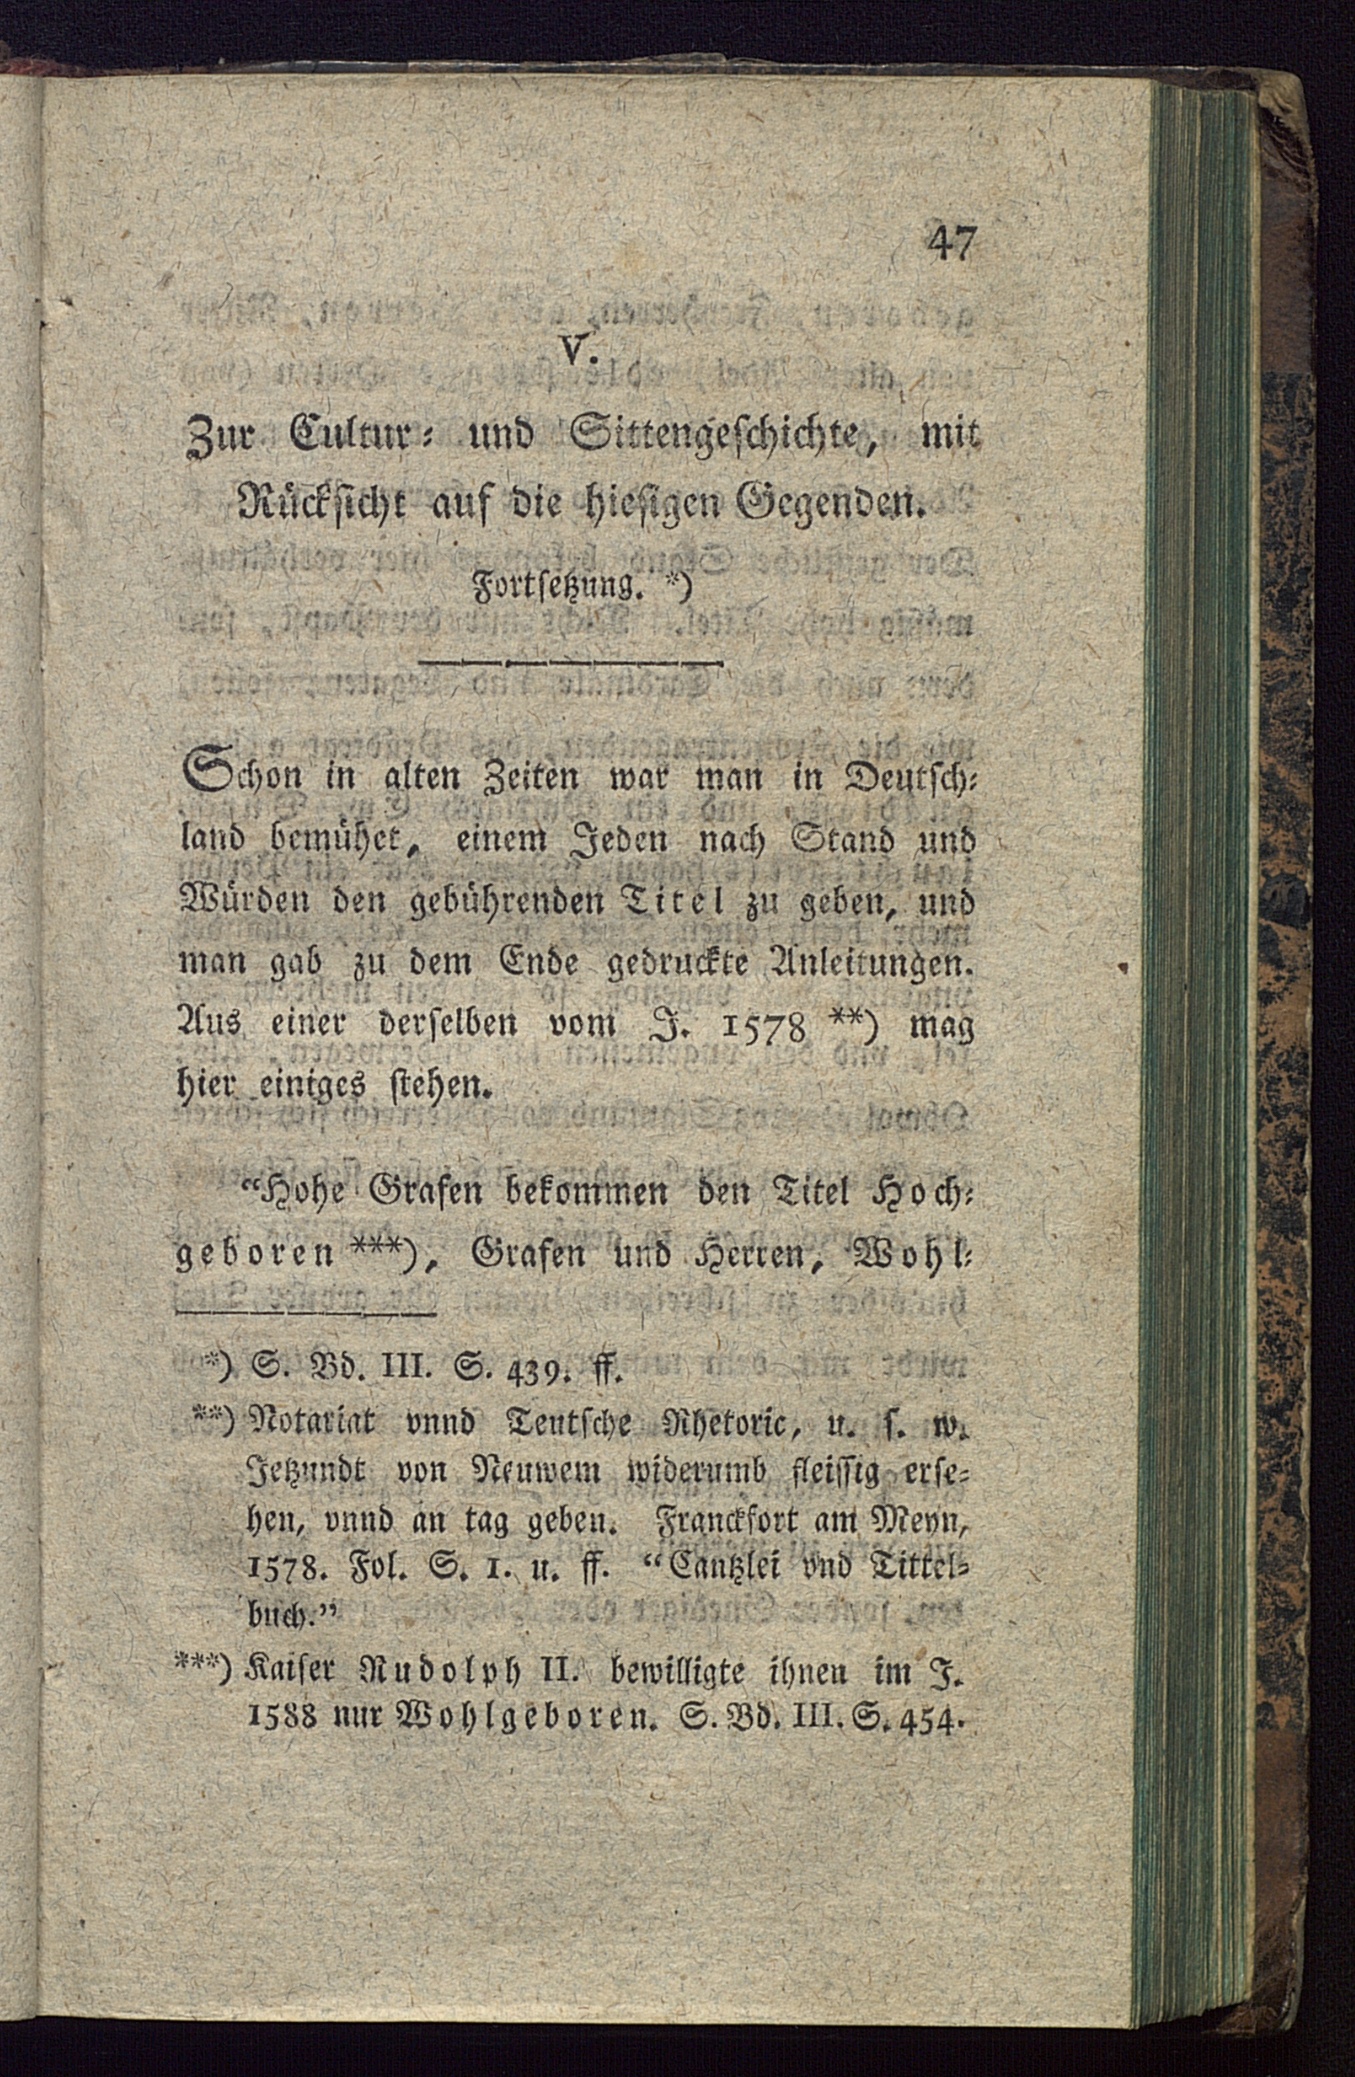 47
V.
Zur Cultur- und Sittengeschichte, mit
Rücksicht auf die hiesigen Gegenden.
Fortsetzung. *)
Schon in alten Zeiten war man in Deutsch-
land bemühet, einem Jeden nach Stand und
Würden den gebührenden Titel zu geben, und
man gab zu dem Ende gedruckte Anleitungen.
Aus einer derselben vom J. 1578 **) mag
hier einiges stehen.
“Hohe Grafen bekommen den Titel Hoch-
geboren ***), Grafen und Herren, Wohl-
*) S. Bd. III. S. 439. ff.
**) Notariat vnnd Teutsche Rhetoric, u. s. w.
Jetzundt von Neuwem widerumb fleissig erse-
hen, vnnd an tag geben. Franckfort am Meyn,
1578. Fol. S. 1. u. ff. “Cantzlei vnd Tittel-
buch.”
***) Kaiser Rudolph II. bewilligte ihnen im J.
1588 nur Wohlgeboren. S. Bd. III. S. 454.